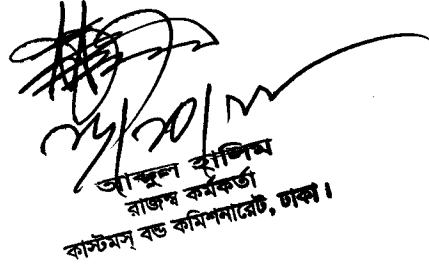 আব্দুল হালিম
রাজস্ব কর্মকর্তা
কাস্টমস্ বন্ড কমিশনারেট, ঢাকা।